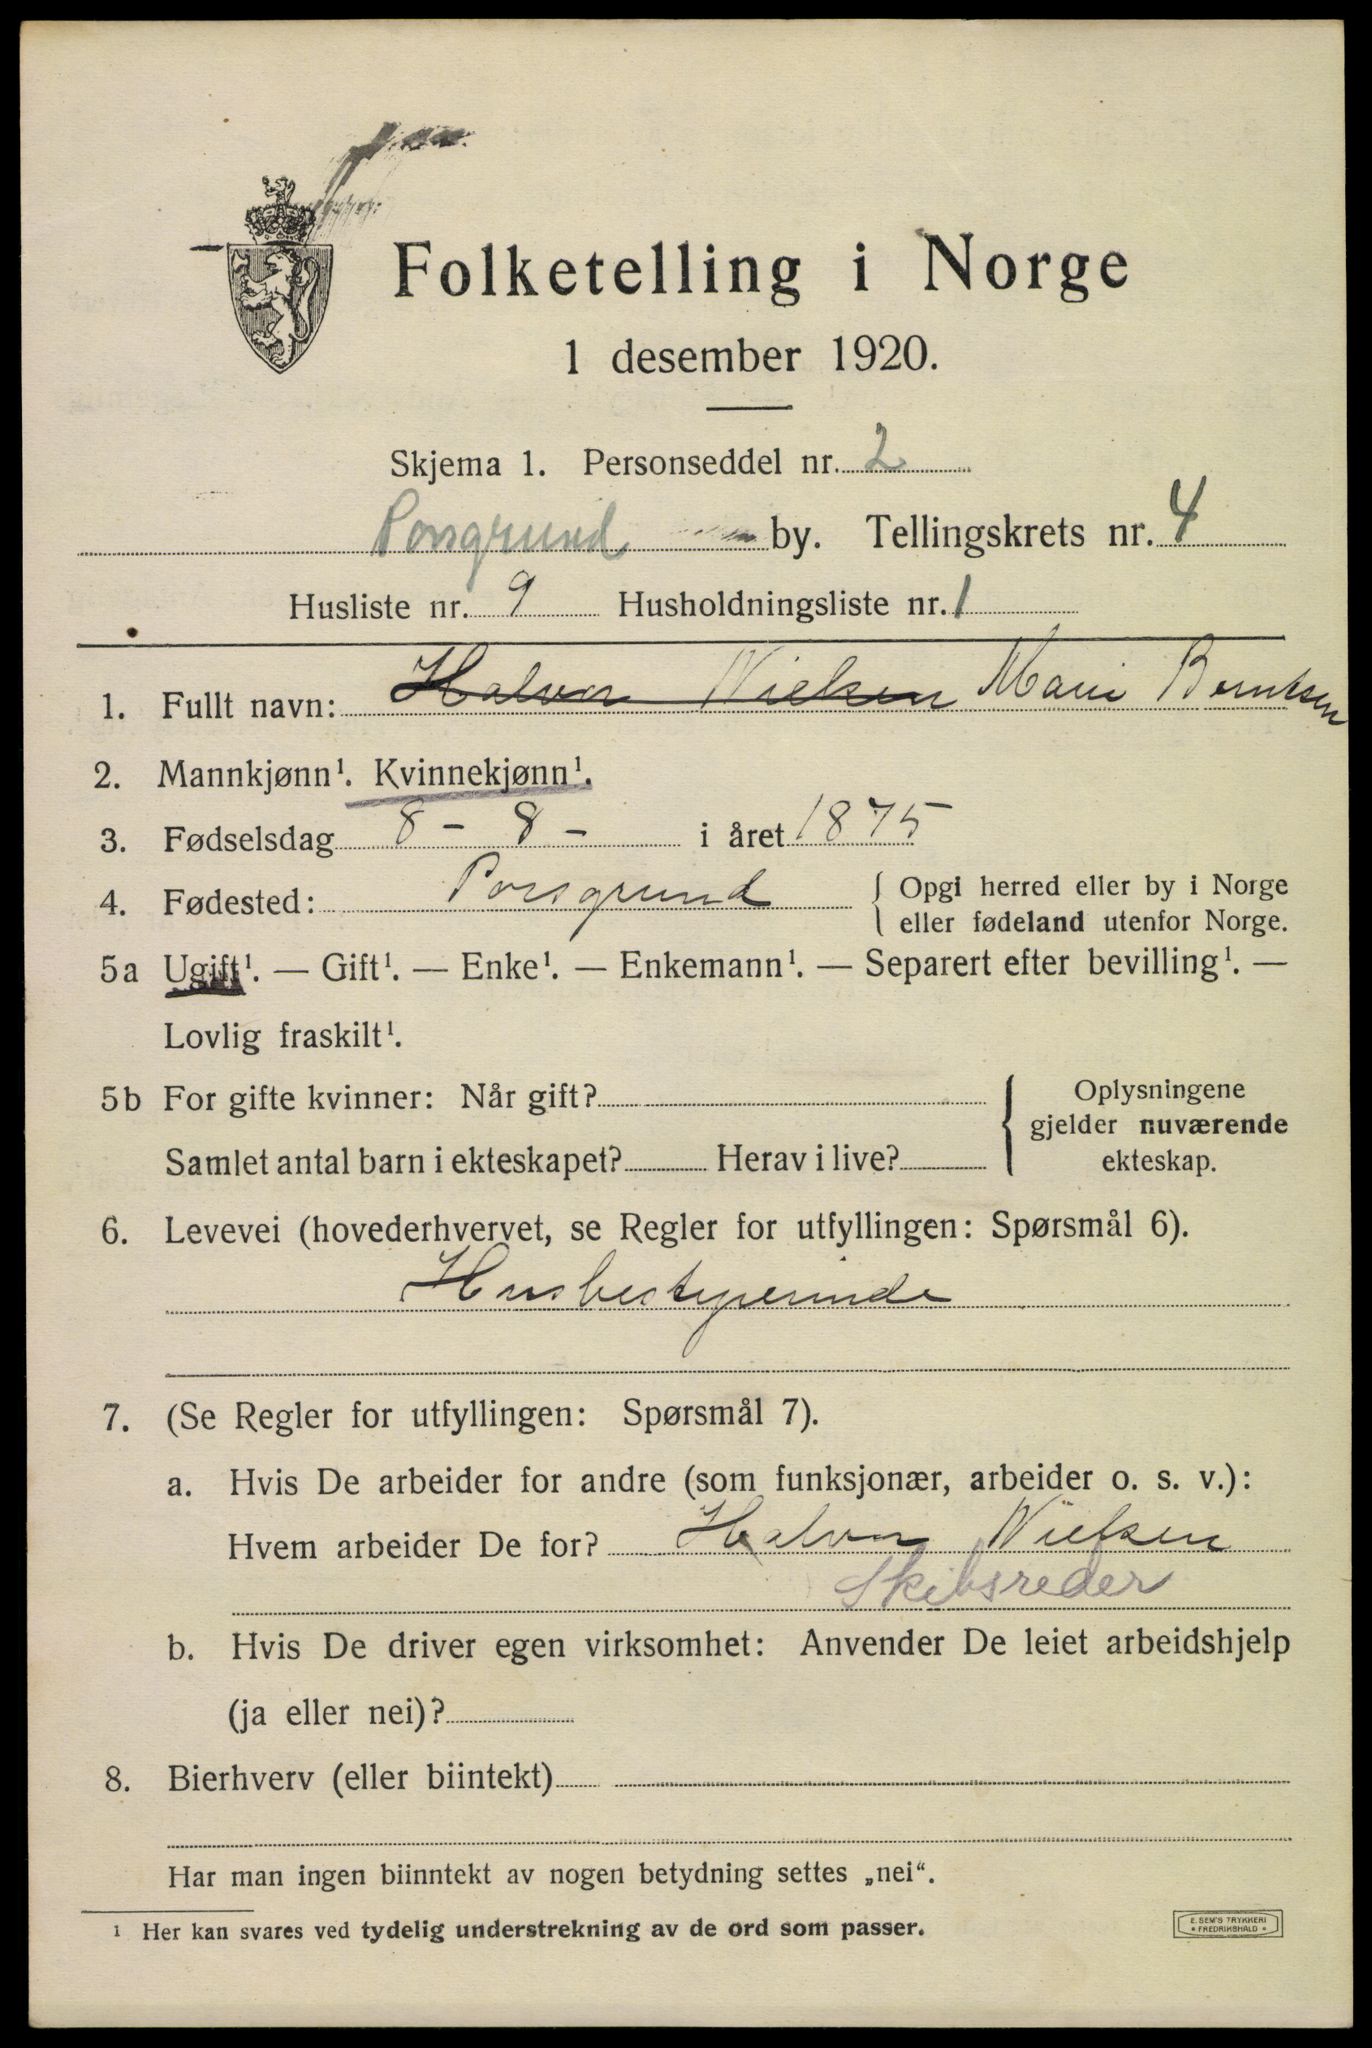 Folketelling i Norge
1 desember 1920.
Skjema 1. Personseddel nr. 2
Porsgrund by. Tellingskrets nr. 4
Husliste nr. 9 Husholdningsliste nr. 1
1. Fullt navn: Halvor Nielsen Marie Berntsen
2. Mannkjønn¹. Kvinnekjønn¹.
3. Fødselsdag 8 - 8 - i året 1875
4. Fødested: Porsgrund { Opgi herred eller by i Norge
eller fødeland utenfor Norge.
5a Ugift¹. — Gift¹. — Enke¹. — Enkemann¹. — Separert efter bevilling¹. —
Lovlig fraskilt¹.
5b For gifte kvinner: Når gift? { Oplysningene
gjelder nuværende
Samlet antal barn i ekteskapet? Herav i live? ekteskap.
6. Levevei (hovederhvervet, se Regler for utfyllingen: Spørsmål 6).
Husbestyrerinde
7. (Se Regler for utfyllingen: Spørsmål 7).
a. Hvis De arbeider for andre (som funksjonær, arbeider o. s. v.):
Hvem arbeider De for? Halvor Nielsen
Skibsreder
b. Hvis De driver egen virksomhet: Anvender De leiet arbeidshjelp
(ja eller nei)?
8. Bierhverv (eller biintekt)
Har man ingen biinntekt av nogen betydning settes „nei“.
¹ Her kan svares ved tydelig understrekning av de ord som passer.
E. SEM'S TRYKKERI
• FREDRIKSHALD •